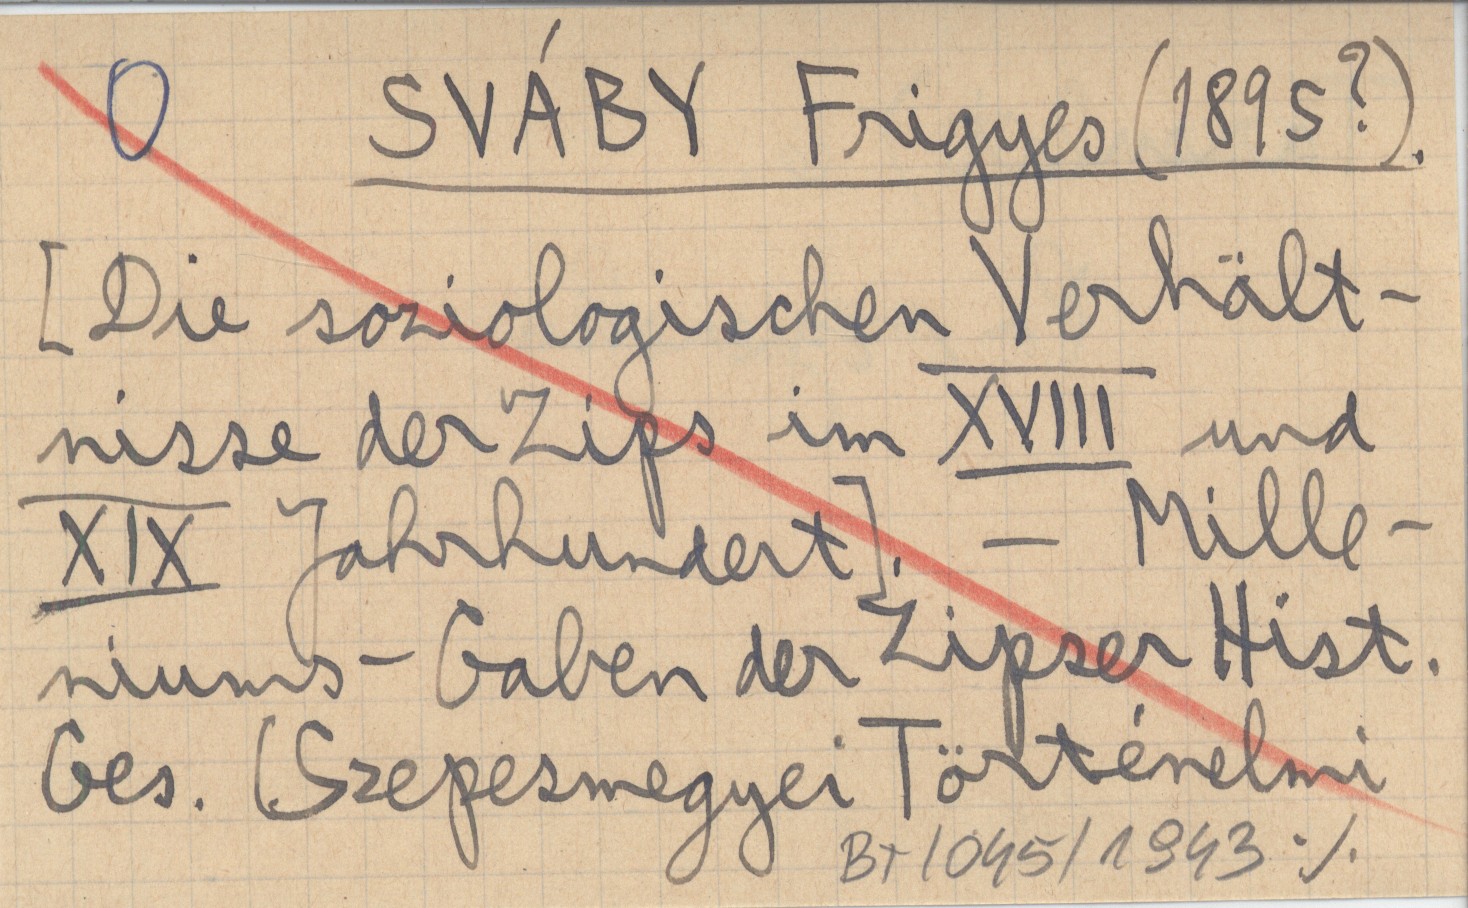 0 SVÁBY Frigyes (1895?).
[Die soziologischen Verhält-
nisse der Zips im XVIII und
XIX Jahrhundert]. — Mille-
niums-Gaben der Zipser Hist.
Ges. (Szepesmegyei Történelmi
Bt/045/1943 ./.